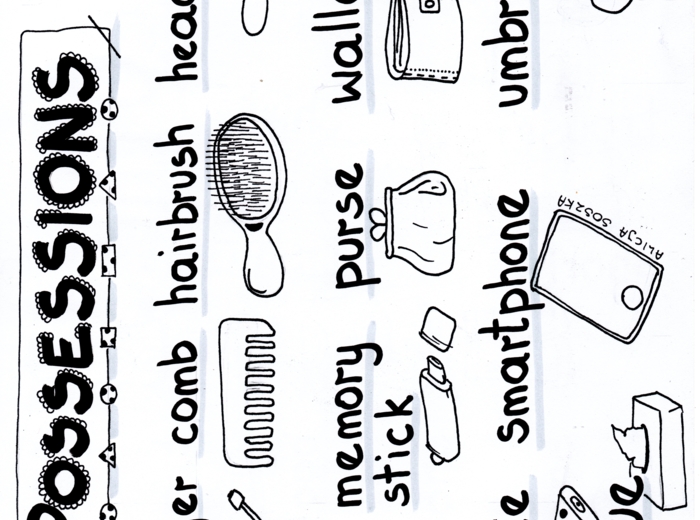 POSSESSIONS
er comb hairbrush head
memory purse walle
stick
e smartphone umbr
ALICJA SOSZKA
ue